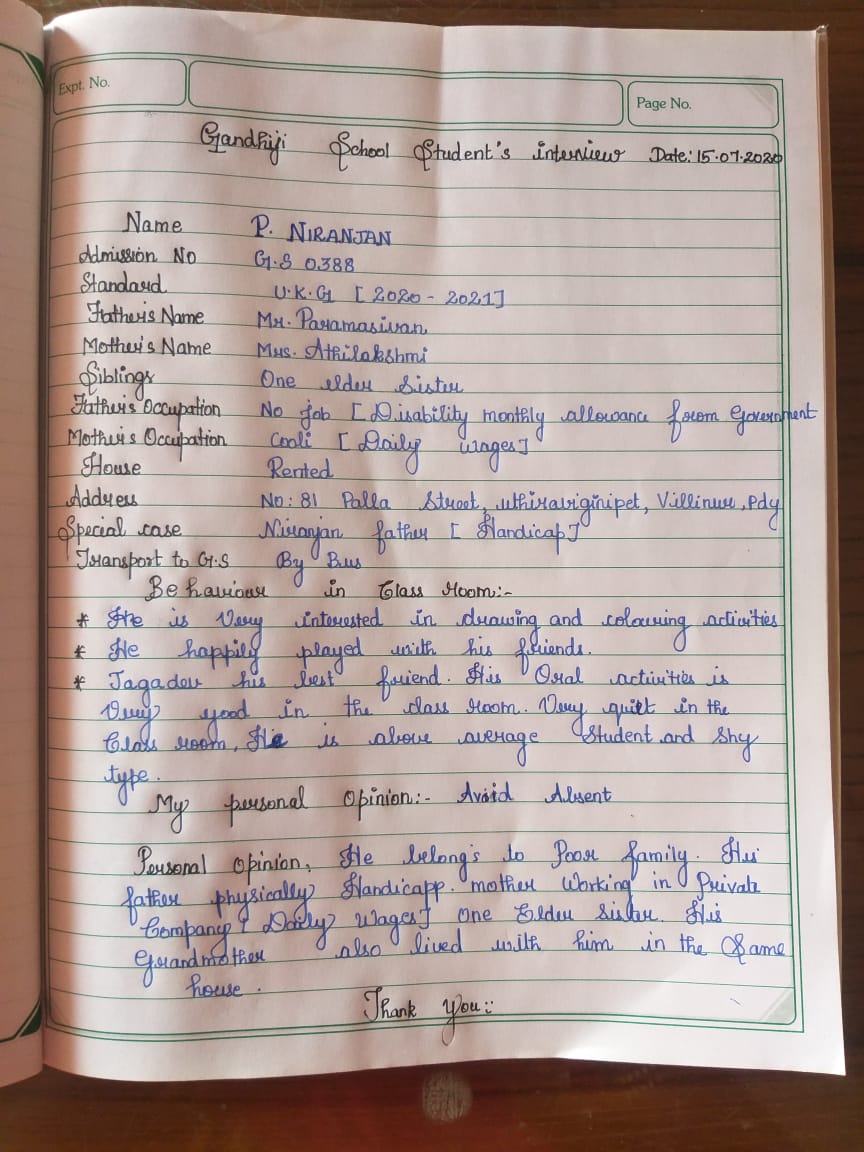 Expt. No.
Page No.
Gandhiji School Student's interview Date: 15.07.2020
Name P. NIRANJAN
Admission No G.S 0388
Standard U.K.G [2020 - 2021]
Father's Name Mr. Paramasivan
Mother's Name Mrs. Athilakshmi
Siblings One elder Sister
Father's Occupation No job [Disability monthly allowance form Government
Mother's Occupation Cooli [Daily wages]
House Rented
Address No: 81 Palla Street, uthiraviginipet, Villinur, Pdy
Special case Niranjan father [Handicap]
Transport to G.S By Bus
Behaviour in Class Room:-
* He is Very interested in drawing and colouring activities
* He happily played with his friends.
* Jagadev his best friend. His Oral activities is
Very good in the class room. Very quiet in the
Class room, He is above average Student and Shy
type.
My personal Opinion:- Avoid Absent
Personal Opinion, He belong's to Poor family. His
father physically Handicapp. mother Working in Private
Company [Daily wages] One Elder Sister. His
Grandmother also lived with him in the Same
house.
Thank You::